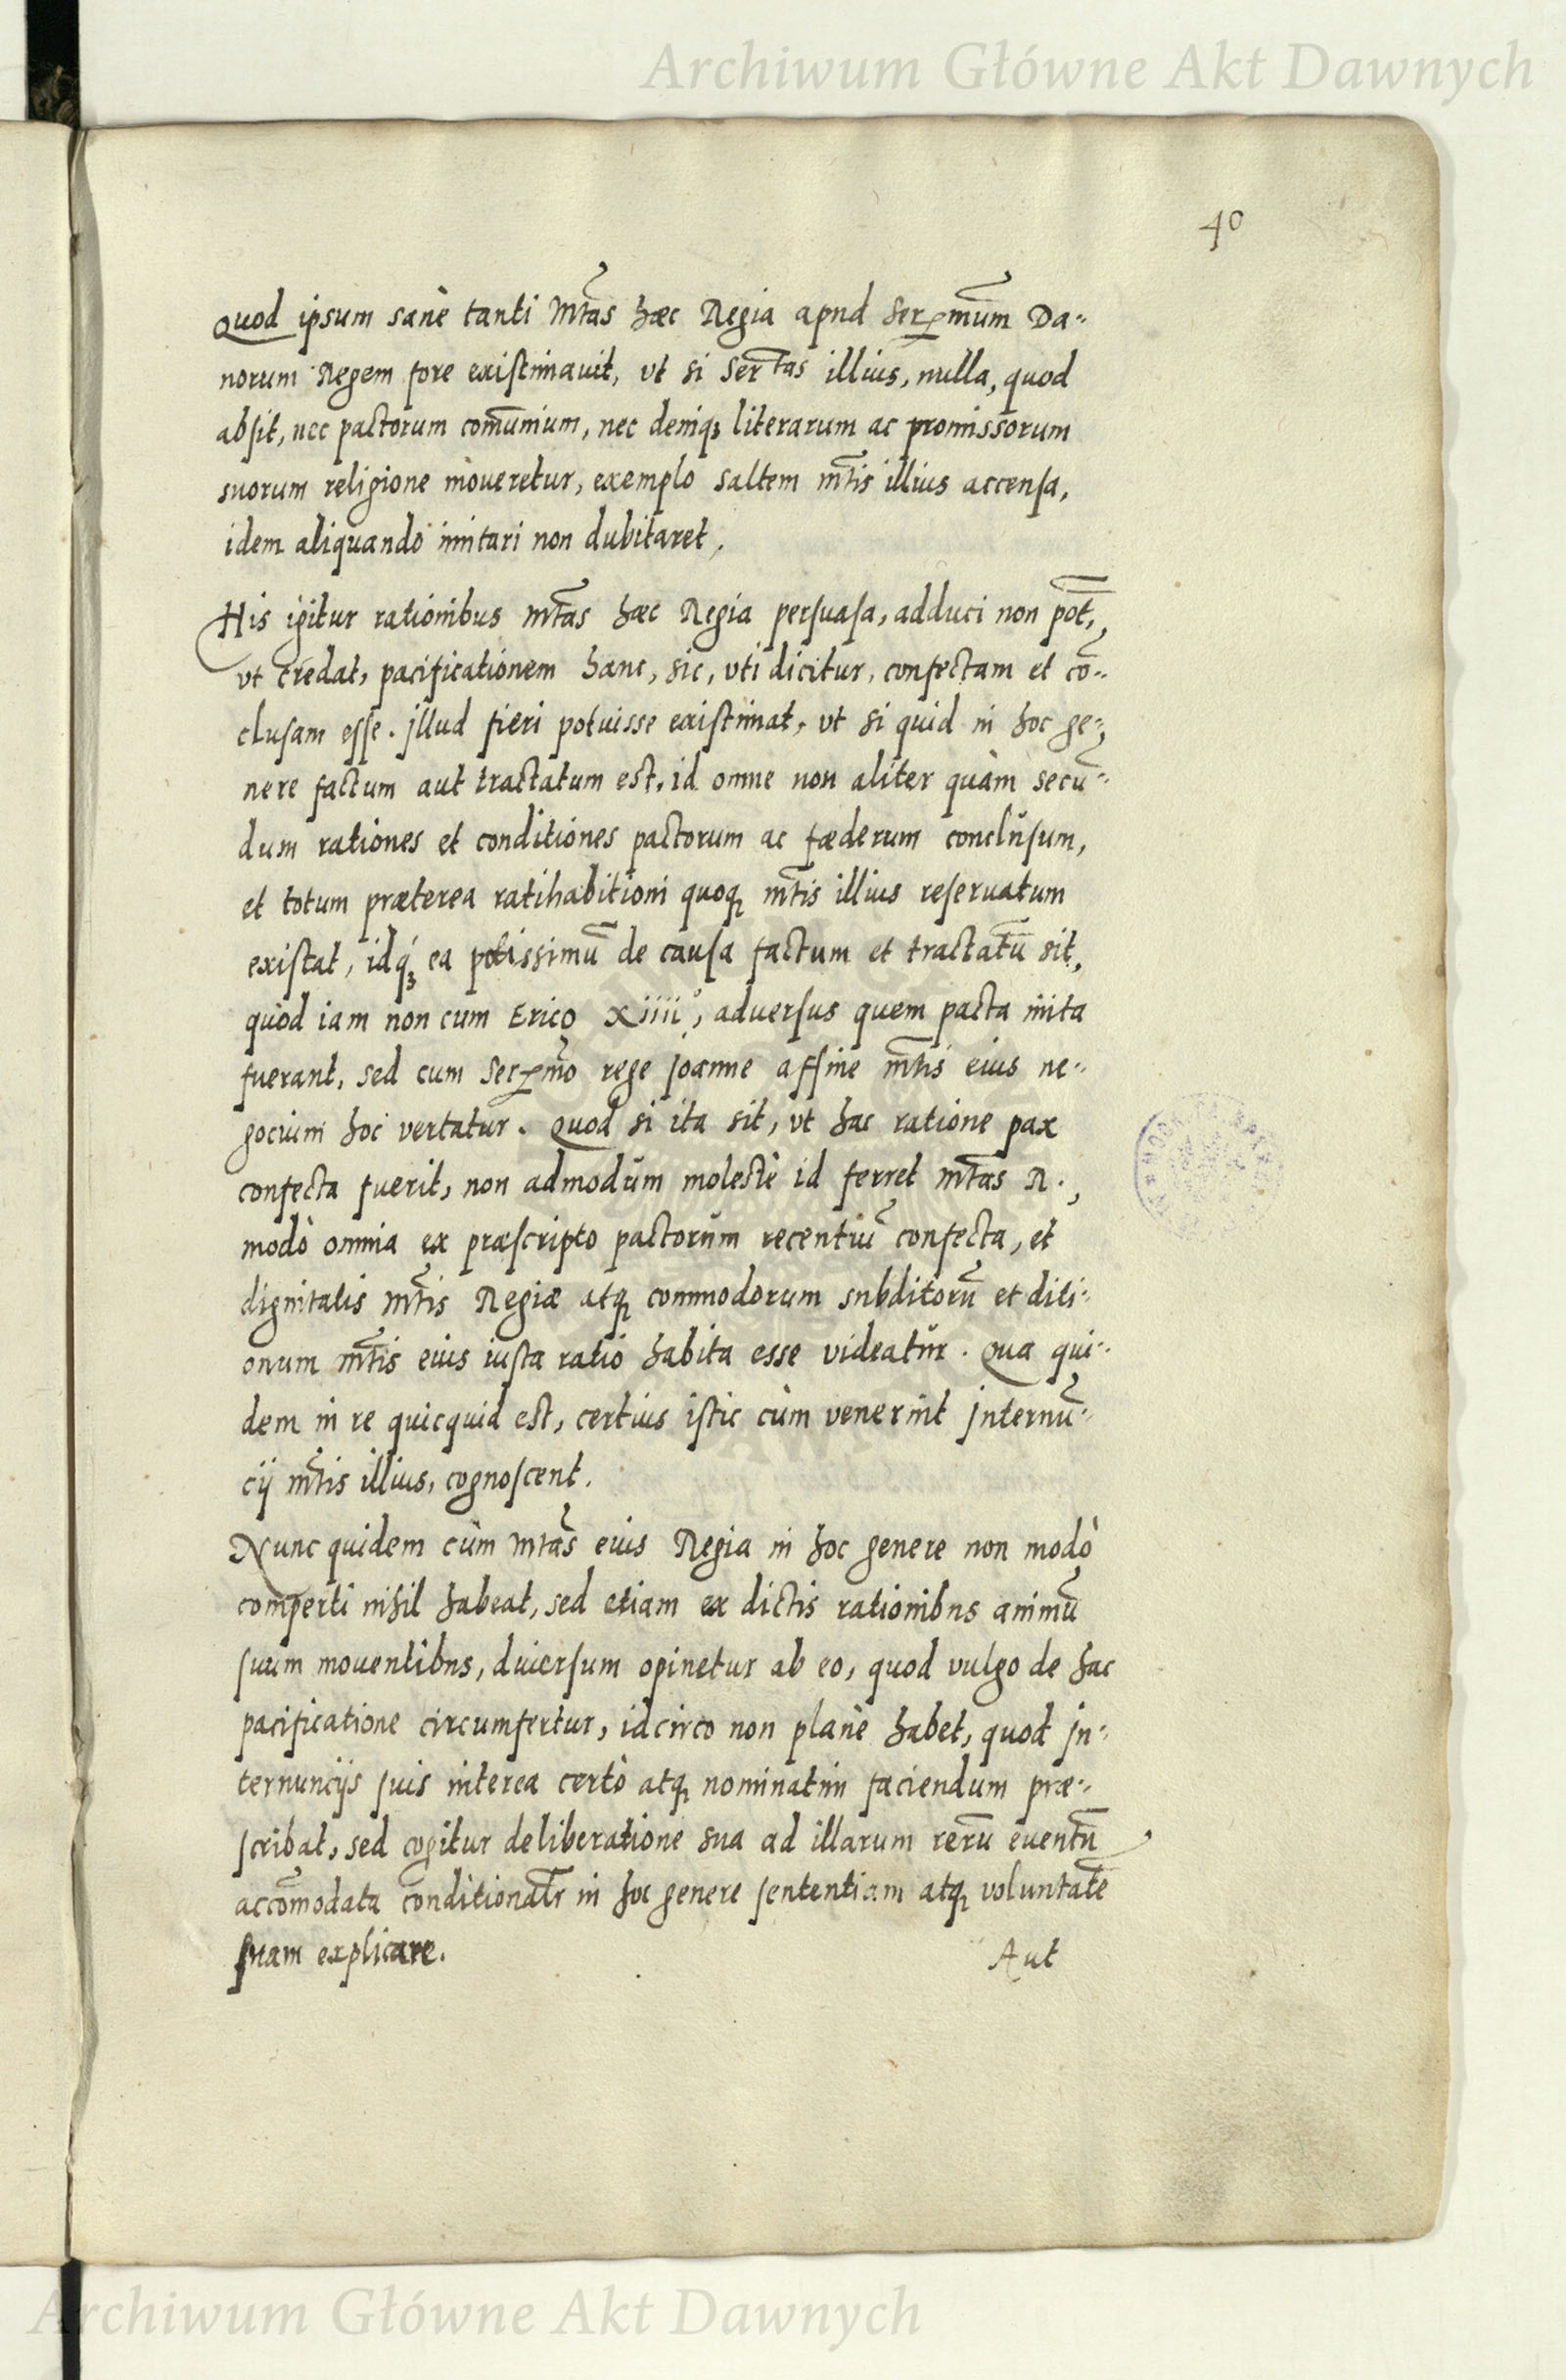 Archiwum Główne Akt Dawnych
40
Quod ipsum sanè tanti Mtãs hæc Regia apud Serᵽmũm Da-
norum Regem fore existimauit, vt si Sertãs illius, nulla, quod
absit, nec pactorum com̃unium, nec deniqꝫ literarum ac promissorum
suorum religione moueretur, exemplo saltem mt̃is illius accensa,
idem aliquando imitari non dubitaret.
His igitur rationibus mtãs hæc Regia persuasa, adduci non põt,
vt credat, pacificationem hanc, sic, vti dicitur, confectam et cõ-
clusam esse. Jllud fieri potuisse existimat, vt si quid in hoc ge-
nere factum aut tractatum est, id omne non aliter quàm secũ-
dum rationes et conditiones pactorum ac fæderum conclusum,
et totum præterea ratihabitioni quoqꝫ mt̃is illius reseruatum
existat, idqꝫ́ ea potissimũ de causa factum et tractatũ sit,
quòd iam non cum Erico xiiii°, aduersus quem pacta inita
fuerant, sed cum Serᵽmõ rege Joanne affine mt̃is eius ne-
gocium hoc vertatur. Quod si ita sit, vt hac ratione pax
confecta fuerit, non admodum molestè id ferret mtãs R.,
modò omnia ex præscripto pactorum recentiũ confecta, et
dignitatis mt̃is Regiæ atqꝫ commodorum subditorũ et diti-
onum mt̃is eius iusta ratio habita esse videatur. Qua qui-
dem in re quicquid est, certius istic cùm venerint Jnternũ-
cij mt̃is illius, cognoscent.
Nunc quidem cùm mtãs eius Regia in hoc genere non modò
comperti nihil habeat, sed etiam ex dictis rationibus animũ
suum mouentibus, diuersum opinetur ab eo, quod vulgo de hac
pacificatione circumfertur, idcirco non planè habet, quod Jn-
ternuncijs suis interea certò atqꝫ nominatim faciendum præ-
scribat, sed cogitur deliberatione sua ad illarum rerũ euentũ
accõmodata conditionalr̃ in hoc genere sententiam atqꝫ voluntatẽ
suam explicare.
Aut
Archiwum Główne Akt Dawnych